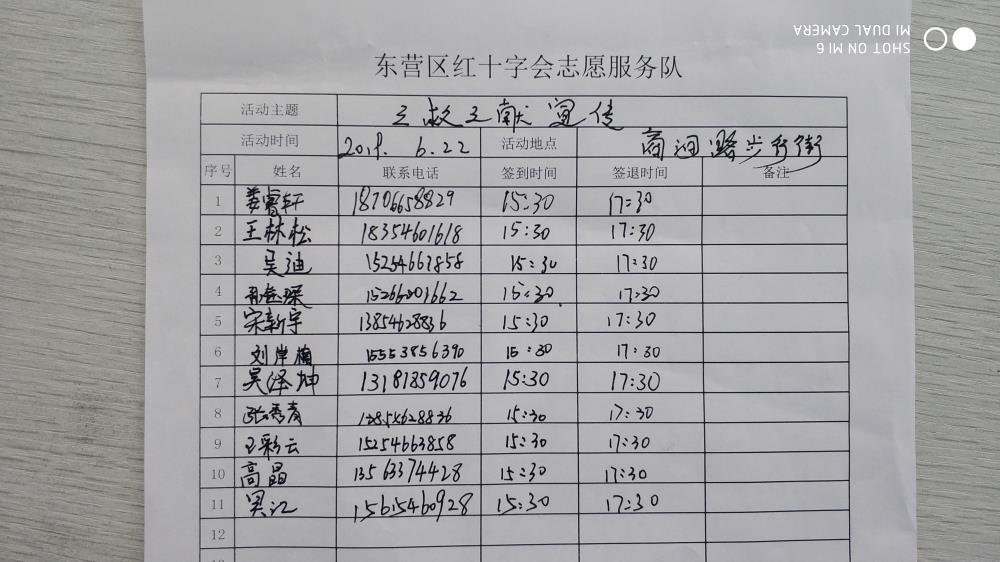 SHOT ON MI 6
MI DUAL CAMERA
东营区红十字会志愿服务队
活动主题 三救三献宣传
活动时间 2019. 6.22 活动地点 商迴路步行街
序号 姓名 联系电话 签到时间 签退时间 备注
1 姜睿轩 18706658829 15:30 17:30
2 王林松 18354601618 15:30 17:30
3 吴迪 15254663858 15:30 17:30
4 15266001662 15:30 17:30
5 宋新宇 13854628836 15:30 17:30
6 刘岸楠 15553856390 15:30 17:30
7 吴泽坤 13181859076 15:30 17:30
8 张秀青 13854628836 15:30 17:30
9 王彩云 15254663858 15:30 17:30
10 高晶 13563374428 15:30 17:30
11 吴江 15615460928 15:30 17:30
12